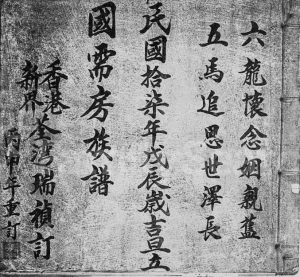 六龍懷念姻親藎
五馬追思世澤長
民國拾柒年戊辰歲吉旦立
國需房族譜
香港
新界
荃湾瑞禎訂
丙申年重訂